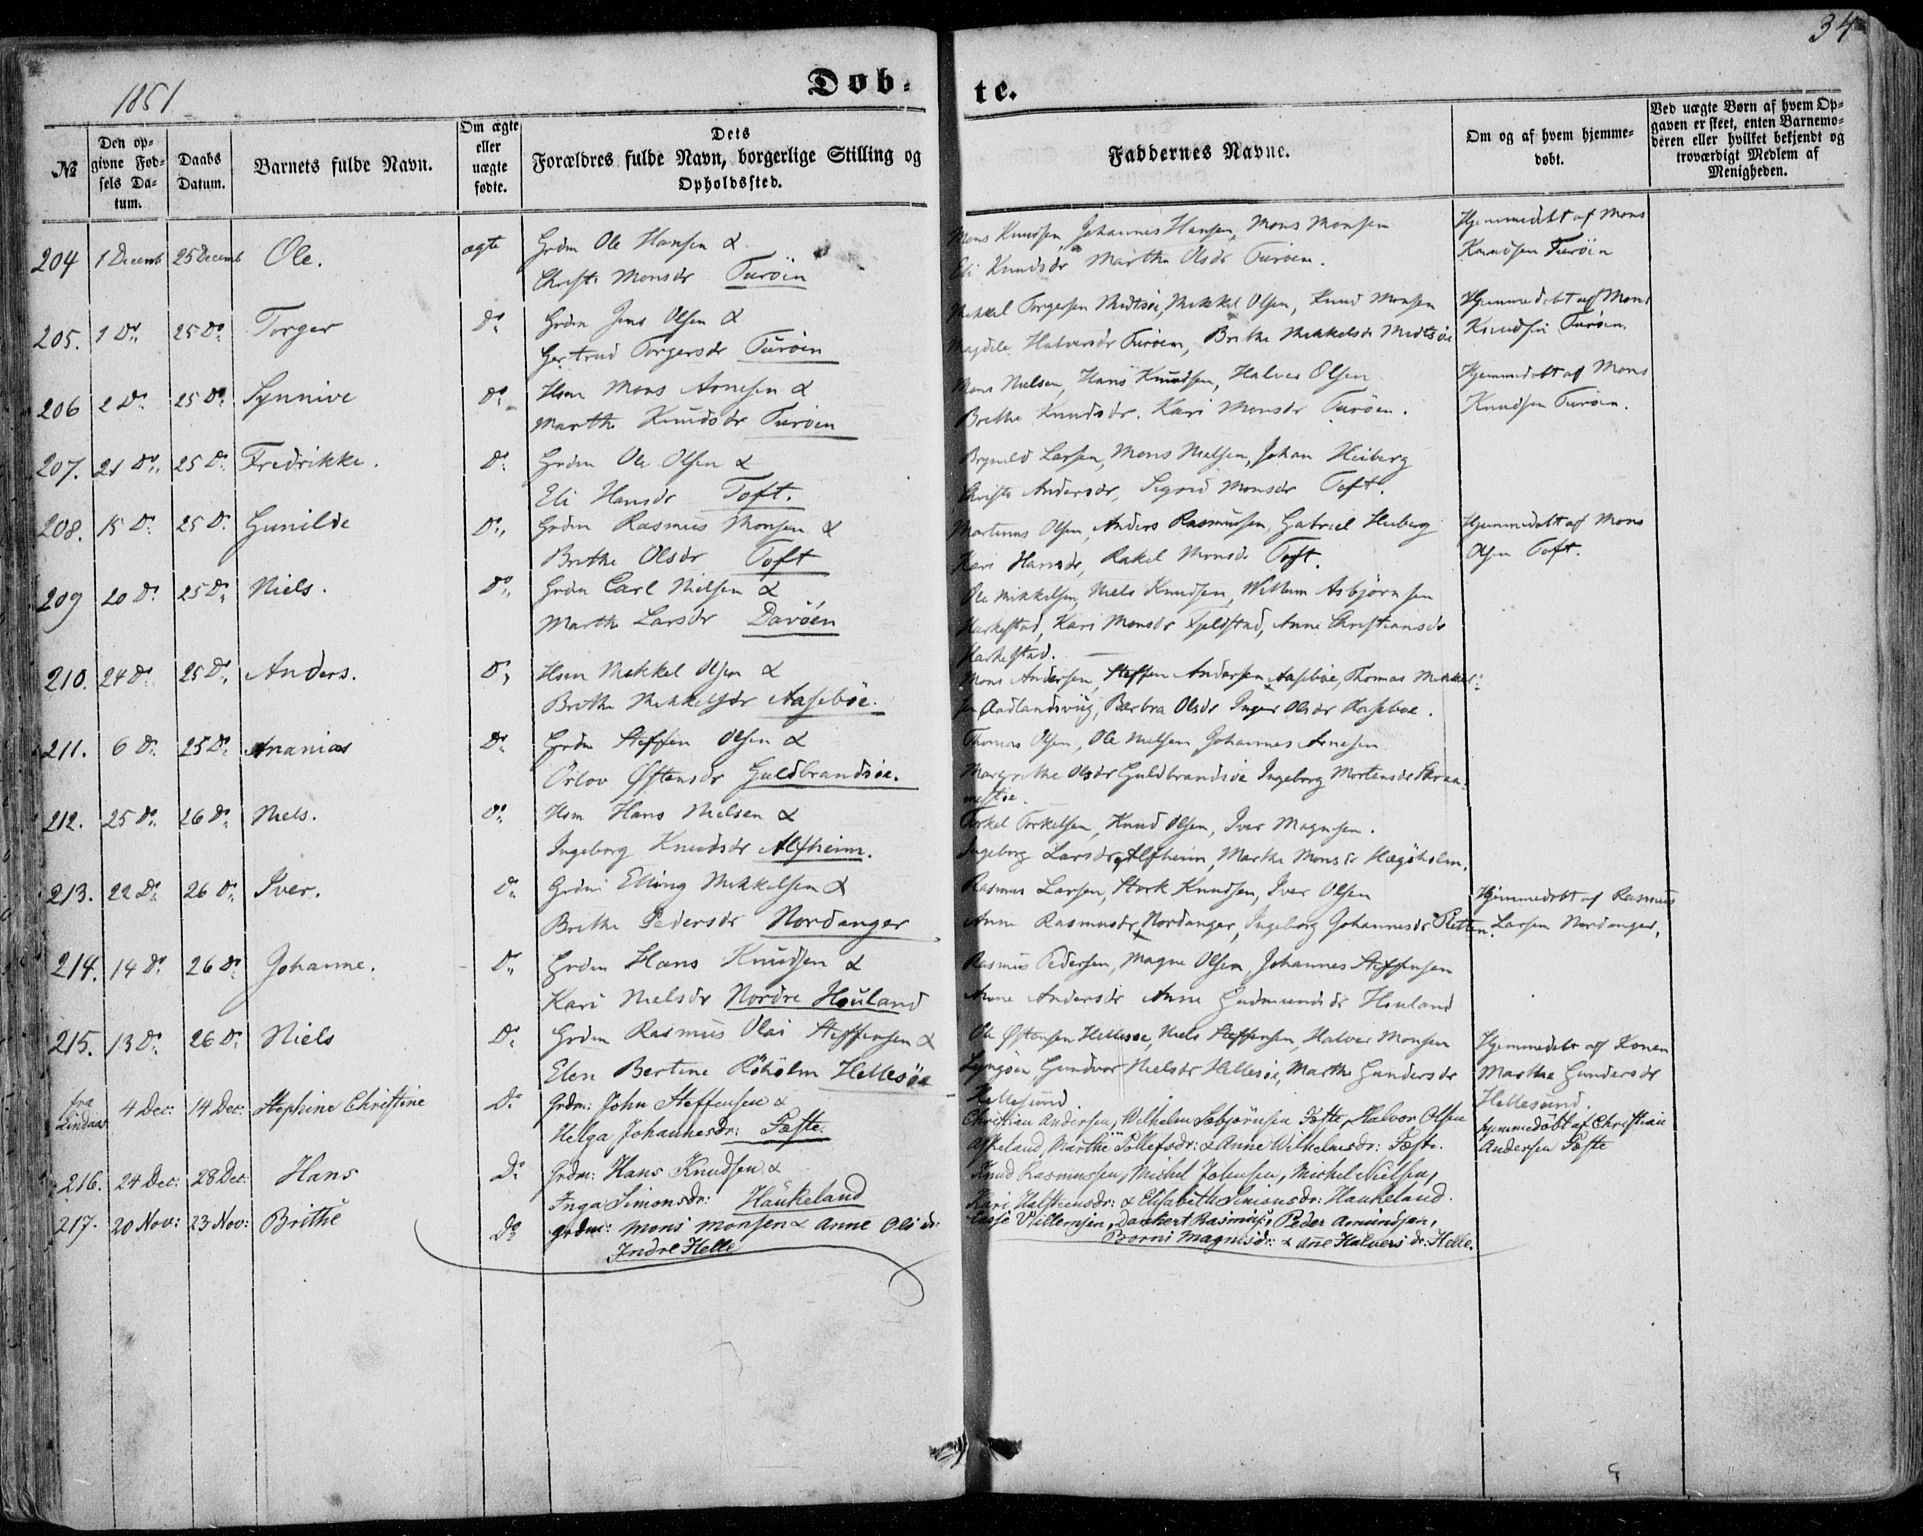 34
1851
Døb-
te.
№
Den op-
givne Fød-
sels Da-
tum.
Daabs
Datum.
Barnets fulde Navn.
Om ægte
eller
uægte
fødte.
Dets
Forældres fulde Navn, borgerlige Stilling og
Opholdssted.
Faddernes Navne.
Om og af hvem hjemme-
døbt.
Ved uægte Børn af hvem Op-
gaven er skeet, enten Barnemo-
deren eller hvilket bekjendt og
troværdigt Medlem af
Menigheden.
204 1 Decemb 25 Decemb Ole. ægte Grdm Ole Hansen &
Christi Monsdr Turöin
Mons Knudsen Johannes Hansen, Mons Monsen
Eli Knudsdr Marthe Olsdr Turöen.
Hjemmedøbt af Mons
Knudsen Turöin
205. 1 Do. 25 Do. Torger Do Grdm Jens Olsen &
Gertrud Torgersdr Turöin
Mikkel Torgersen Midtsöe, Mikkel Olsen, Knud Monsen
Magdele Halversdr Turöen, Brithe Mikkelsdr Midtsöe
Hjemmedøbt af Mons
Knudsen Turöen.
206 2 Do. 25 Do. Synnive Do. Hsm Mons Arnesen &
Marthe Knudsdr Turöen
Mons Nielsen, Hans Knudsen, Halver Olsen
Brithe Knudsdr. Kari Monsdr Turöen.
Hjemmedøbt af Mons
Knudsen Turöen.
207. 21 Do. 25 Do. Fredrikke. Do. Grdm Ole Olsen &
Eli Hansdr Toft.
Larsen, Mons Nielsen, Johan Heiberg
Christi Andersdr, Sigrid Monsdr Toft.
208. 15 Do. 25 Do. Gunilde Do. Grdm Rasmus Monsen &
Brithe Olsdr Toft
Martinus Olsen, Anders Rasmussen, Gabriel Heiberg
Kari Hansdr, Rakel Monsdr Toft.
Hjemmedøbt af Mons
Olsen Toft.
209 20 Do. 25 Do. Niels. Do. Grdm Carl Nielsen &
Marthe Larsdr Davöen
Ole Mikkelsen, Niels Knudsen, Willum Asbjörnsen
Harkestad, Kari Monsdr Anne Christiansdr
Harkestad.
210. 24 Do. 25 Do. Anders. Do. Hsm Mikkel Olsen &
Brithe Mikkelsdr Aaseböe.
Mons Andersen, Steffen Andersen Aaseböe, Thomas Mikkel-
sen Aadlandsviig, Barbra Olsdr Inger Olsdr Aaseböe.
211. 6 Do. 25 Do. Ananias Do. Grdm Steffen Olsen &
Orlov Østensdr Guldbrandsöe.
Thomas Olsen, Ole Nielsen Johannes Arnesen
Margrethe Olsdr Guldbrandsöe Ingeborg Mortensdr
212. 25 Do. 26 Do. Niels. Do. Hsm Hans Nielsen &
Ingeborg Knudsdr Alfheim.
Torkel Torkelsen, Knud Olsen, Iver Magnesen.
Ingeborg Larsdr, Alfheim, Marthe Monsdr Hægöholm.
213. 22 Do. 26 Do. Iver. Do. Grdm Elling Mikkelsen &
Brithe Pedersdr Nordanger
Rasmus Larsen, Stork Knudsen, Iver Olsen
Anne Rasmusdr, Nordanger, Ingeborg Johannesdr
Hjemmedøbt af Rasmus
Larsen Nordanger.
214. 14 Do. 26 Do. Johanne. Do. Grdm Hans Knudsen &
Kari Nielsdr Nordre Houland
Rasmus Pedersen, Magne Olsen, Johannes Steffensen
Anne Andersdr Anne Gudmundsdr Houland
215. 13 Do. 26 Do. Niels Do. Grdm Rasmus Olai Steffensen &
Elen Bertine Röholm Hellesöe
Ole Østensen Hellesöe, Niels Steffensen, Halver Monsen
Lyngöen, Gundvor Nielsdr Hellesöe, Marthe Gundersdr
Hellesund.
Hjemmedøbt af Konen
Marthe Gundersdr
Hellesund.
fra
Lindaas 4 Dec: 14 Dec: Stephine Christine Do. Grdm: John Steffensen &
Helga Johannesdr: Fæste.
Christian Andersen, Wilhelm Sebjörnsen Fæste, Halvor Olsen
Askeland, Marthe Tollefsdr: & Anne Wilhelmsdr: Fæste.
hjemmedöbt af Christian
Andersen Fæste
216. 24 Dec: 28 Dec: Hans Do. Grdm: Hans Knudsen &
Inga Simonsdr: Haukeland
Knud Rasmussen, Michel Johnsen, Michel Nielsen,
Kari Halsteensdr: & Elisabeth Simonsdr: Haukeland.
217. 20 Nov: 23 Nov: Brithe Do grdm: Mons Monsen & Anne Ols dr:
Indre Helle
Lasse Villemsen, Dankert Rasmus: Peder Amundsen,
Borni Magnisdr: & Ane Halvers dr: Helle.